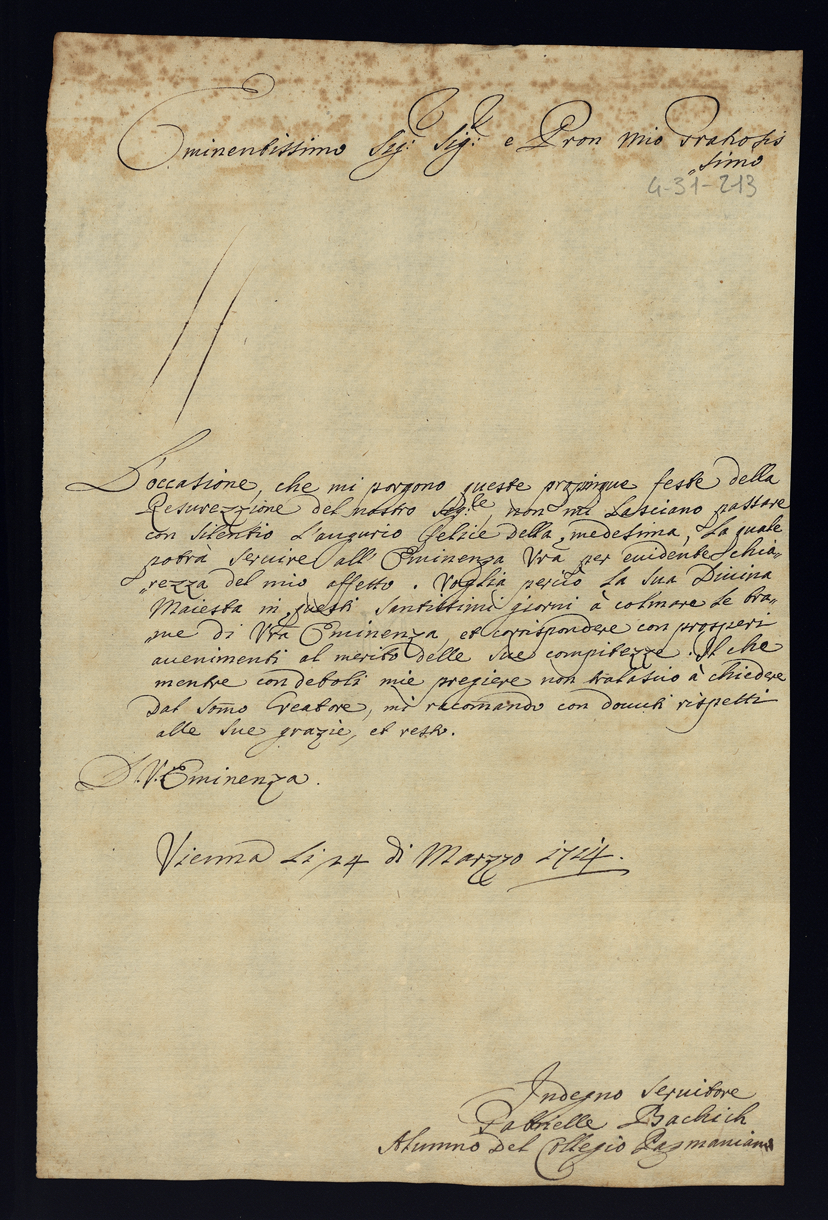 Eminentissimo Sig.r Sig.r e Pron mio Gratiosis
„simo
4-31-213
L'occasione, che mi porgono queste propinque feste della
Resurezzione del nostro Sig.le, non mi lasciano passare
con silentio l'augurio felice della medesima, la quale
potrà servire all' Eminenza Vrã per evidente chia„
„rezza del mio affetto. Voglia perciò la sua Divina
Maiesta in questi santissimi giorni à colmare le bra„
„me di Vrã Eminenza, et corrispondere con prosperi
avenimenti al merito delle sue compitezze. Il che
mentre con deboli mie pregiere non tralascio à chiedere
dal somo Creatore, mi racomando con dovuti rispetti
alle sue grazie, et resto.
D. V. Eminenza.
Vienna li 24 di Marzo 1714.
Indegno servitore
Gabrielle Bachich
Alumno del Collegio Pazmaniano